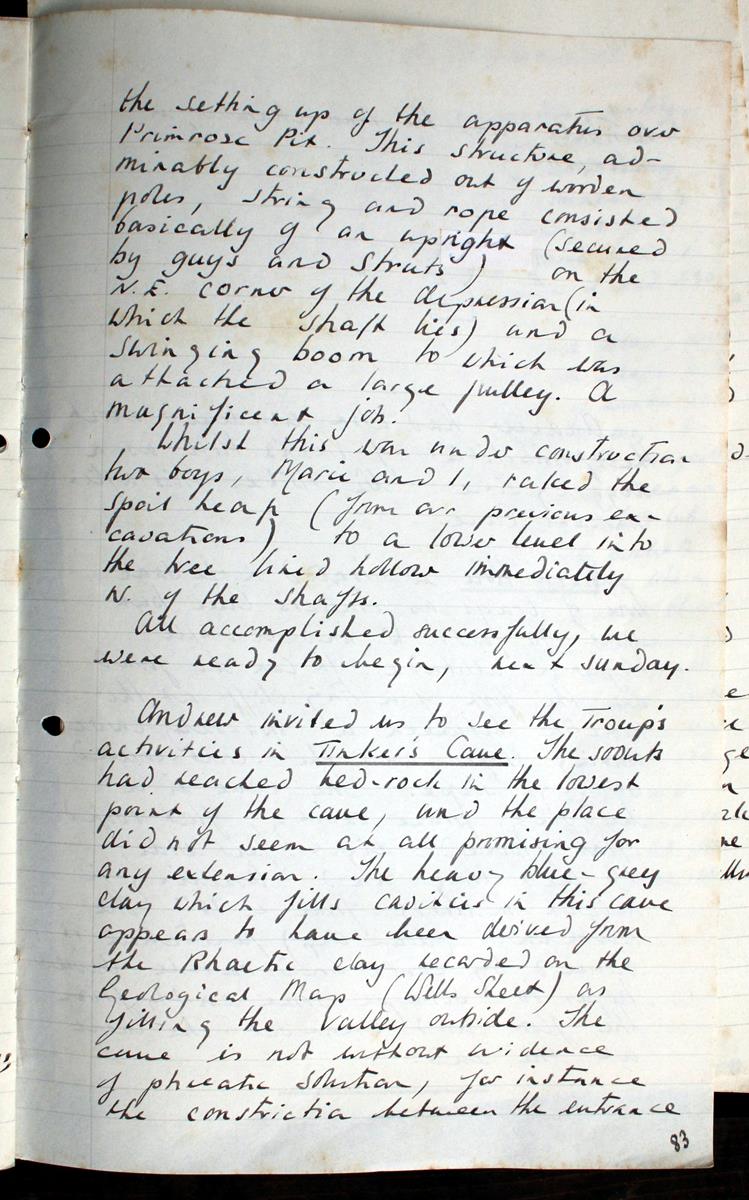 the setting up of the apparatus over
Primrose Pit. This structure, ad-
mirably constructed out of worden
poles, string and rope consisted
basically of an upright (secured
by guys and struts) on the
N.E. corner of the depression (in
which the shaft lies) and a
swinging boom to which was
attached a large pulley. A
magnificent job.
Whilst this was under construction
two boys, Marie and I, raked the
spoil heap (from our previous ex-
cavations) to a lower level into
the tree lined hollow immediately
N. of the shaft.
All accomplished successfully, we
were ready to begin, next sunday.
Andrew invited us to see the Troup's
activities in Tinker's Cave. The scouts
had reached bed-rock in the lowest
point of the cave, und the place
did not seem at all promising for
any extension. The heavy blue-grey
clay which fills cavities in this cave
appears to have been derived from
the Rhaetic clay recorded on the
Geological Map (Wells Sheet) as
filling the valley outside. The
cave is not without evidence
of phreatic solution, for instance
the constriction between the entrance
83